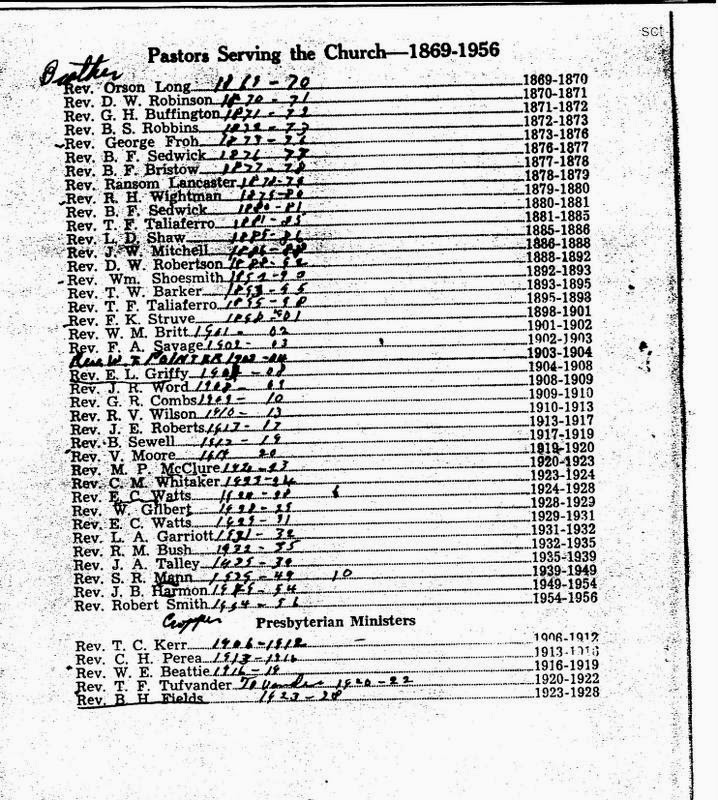 SCI
Pastors Serving the Church—1869-1956
Rev. Orson Long 1869-70 1869-1870
Rev. D. W. Robinson 1870-71 1870-1871
Rev. G. H. Buffington 1871-72 1871-1872
Rev. B. S. Robbins 1872-73 1872-1873
Rev. George Froh 1873-76 1873-1876
Rev. B. F. Sedwick 1876-77 1876-1877
Rev. B. F. Bristow 1877-78 1877-1878
Rev. Ransom Lancaster 1878-79 1878-1879
Rev. R. H. Wightman 1879-80 1879-1880
Rev. B. F. Sedwick 1880-81 1880-1881
Rev. T. F. Taliaferro 1881-85 1881-1885
Rev. L. D. Shaw 1885-86 1885-1886
Rev. J. W. Mitchell 1886-88 1886-1888
Rev. D. W. Robertson 1888-92 1888-1892
Rev. Wm. Shoesmith 1892-1893
Rev. T. W. Barker 1893-95 1893-1895
Rev. T. F. Taliaferro 1895-98 1895-1898
Rev. F. K. Struve 1898-01 1898-1901
Rev. W. M. Britt 1901-02 1901-1902
Rev. F. A. Savage 1902-03 1902-1903
Rev. W. T. POINTER 1903-04 1903-1904
Rev. E. L. Griffy 1904-08 1904-1908
Rev. J. R. Word 1908-09 1908-1909
Rev. G. R. Combs 1909-10 1909-1910
Rev. R. V. Wilson 1910-13 1910-1913
Rev. J. E. Roberts 1913-17 1913-1917
Rev. B. Sewell 1917-19 1917-1919
Rev. V. Moore 1919-20 1919-1920
Rev. M. P. McClure 1920-23 1920-1923
Rev. C. M. Whitaker 1923-24 1923-1924
Rev. E. C. Watts 1924-28 1924-1928
Rev. W. Gilbert 1928-29 1928-1929
Rev. E. C. Watts 1929-31 1929-1931
Rev. L. A. Garriott 1931-32 1931-1932
Rev. R. M. Bush 1932-35 1932-1935
Rev. J. A. Talley 1935-39 1935-1939
Rev. S. R. Mann 1939-49 10 1939-1949
Rev. J. B. Harmon 1949-54 1949-1954
Rev. Robert Smith 1954-56 1954-1956
Cropper Presbyterian Ministers
Rev. T. C. Kerr 1906-1912 1906-1912
Rev. C. H. Perea 1913-1916 1913-1916
Rev. W. E. Beattie 1916-19 1916-1919
Rev. T. F. Tufvander 1920-22 1920-1922
Rev. B. H. Fields 1923-28 1923-1928